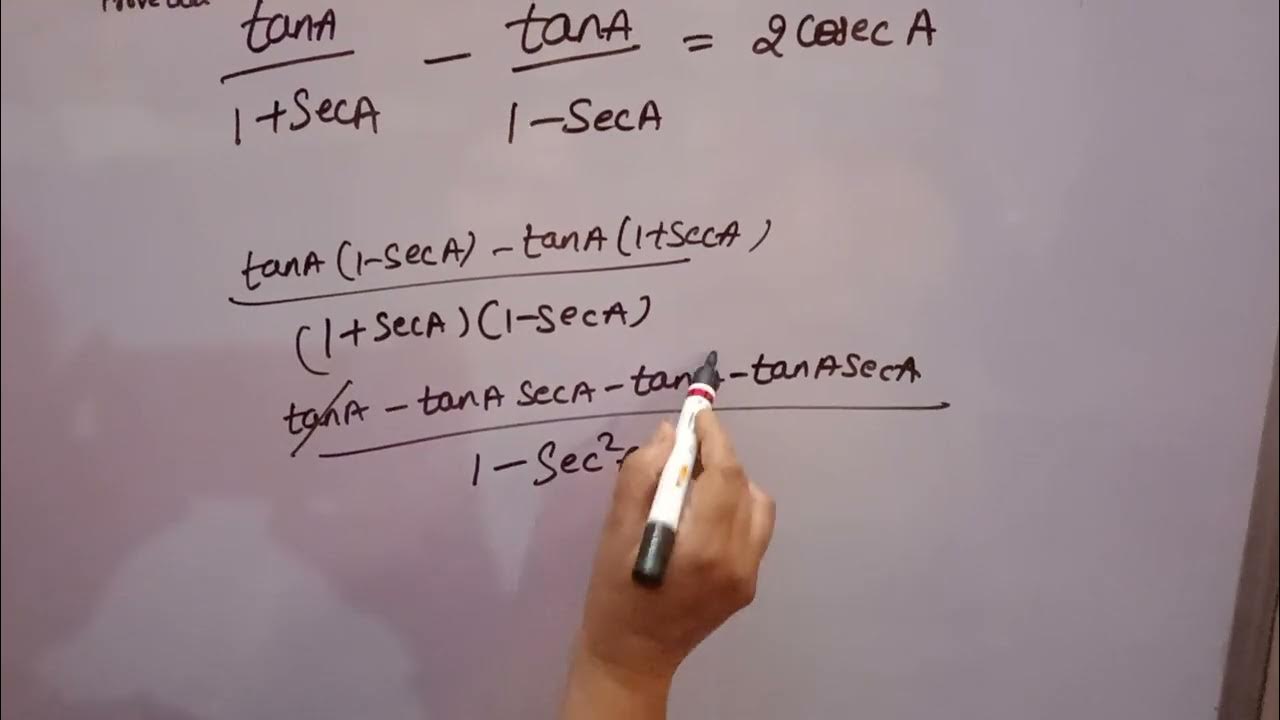 tanA/1+SecA - tanA/1-SecA = 2 cosec A
tanA (1-secA) - tanA (1+SecA)
(1+secA)(1-secA)
tanA - tanA secA - tan - tanA secA
1 - Sec²